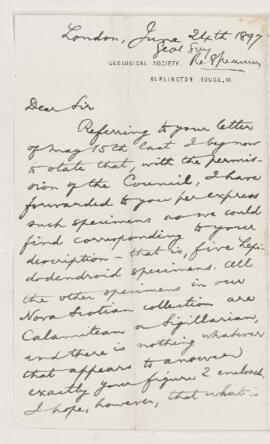 London, June 24th 1897
Geol Surv
GEOLOGICAL SOCIETY, Re Specimens
BURLINGTON HOUSE, W.
Dear Sir
Referring to your letter
of May 15th last I beg now
to state that, with the permis-
sion of the Council, I have
forwarded to you per express
such specimens as we could
find corresponding to your
discription – that is, five Lepi-
dodendroid specimens. All
the other specimens in our
Nova Scotian collection are
Calamitean or Sigillarian,
and there is nothing whatever
that appears to answer
exactly your figure 2 enclosed.
I hope, however, that what is